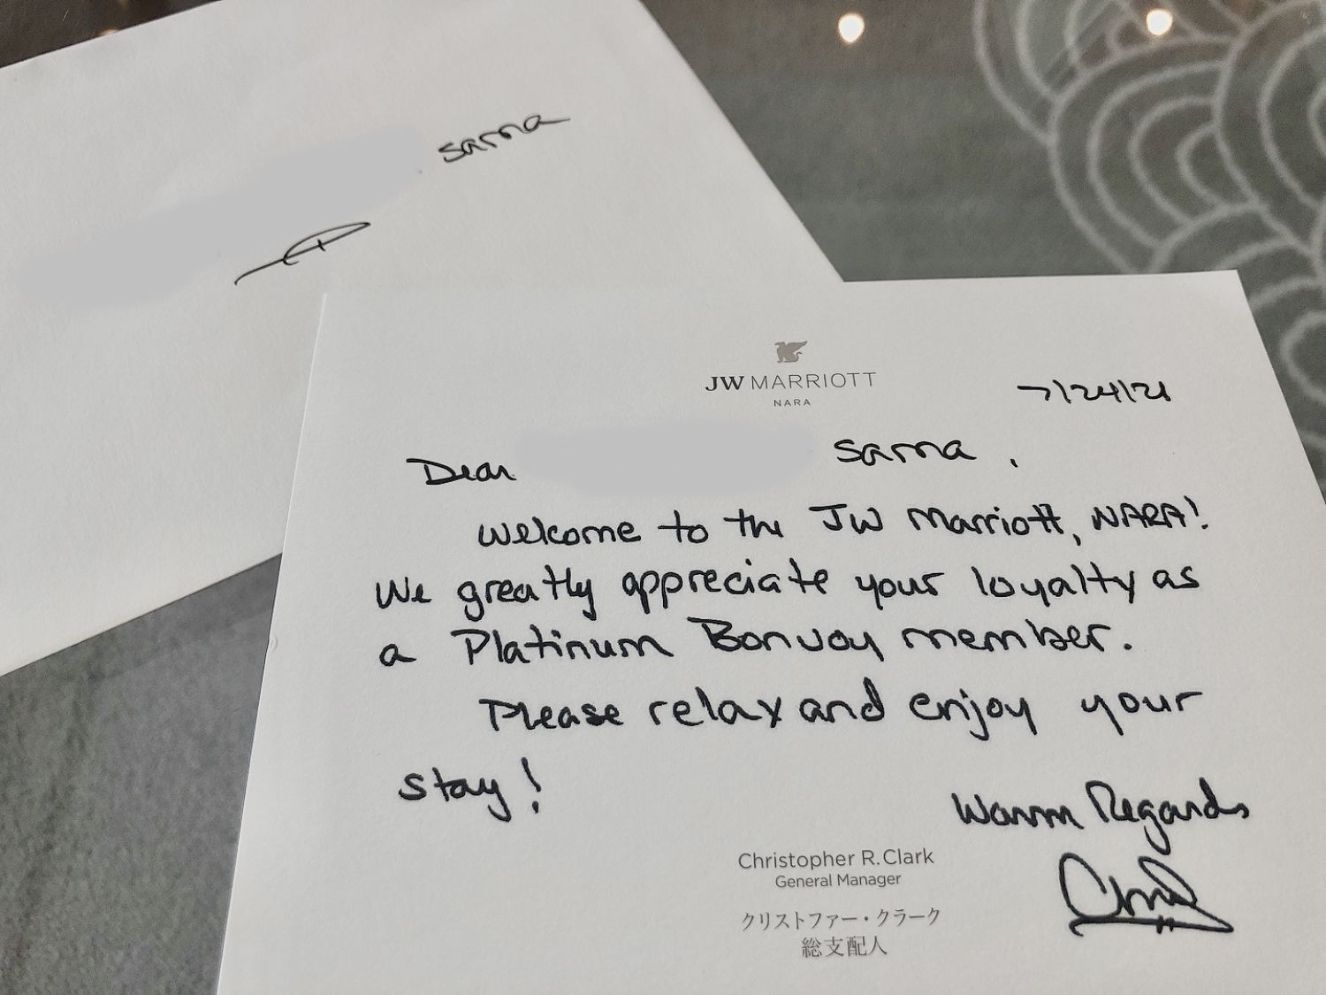 sama
JW MARRIOTT
NARA
7/24/21
Dear sama,
Welcome to the JW Marriott, NARA!
We greatly appreciate your loyalty as
a Platinum Bonvoy member.
Please relax and enjoy your
stay!
Warm Regards
Christopher R. Clark
General Manager
クリストファー・クラーク
総支配人